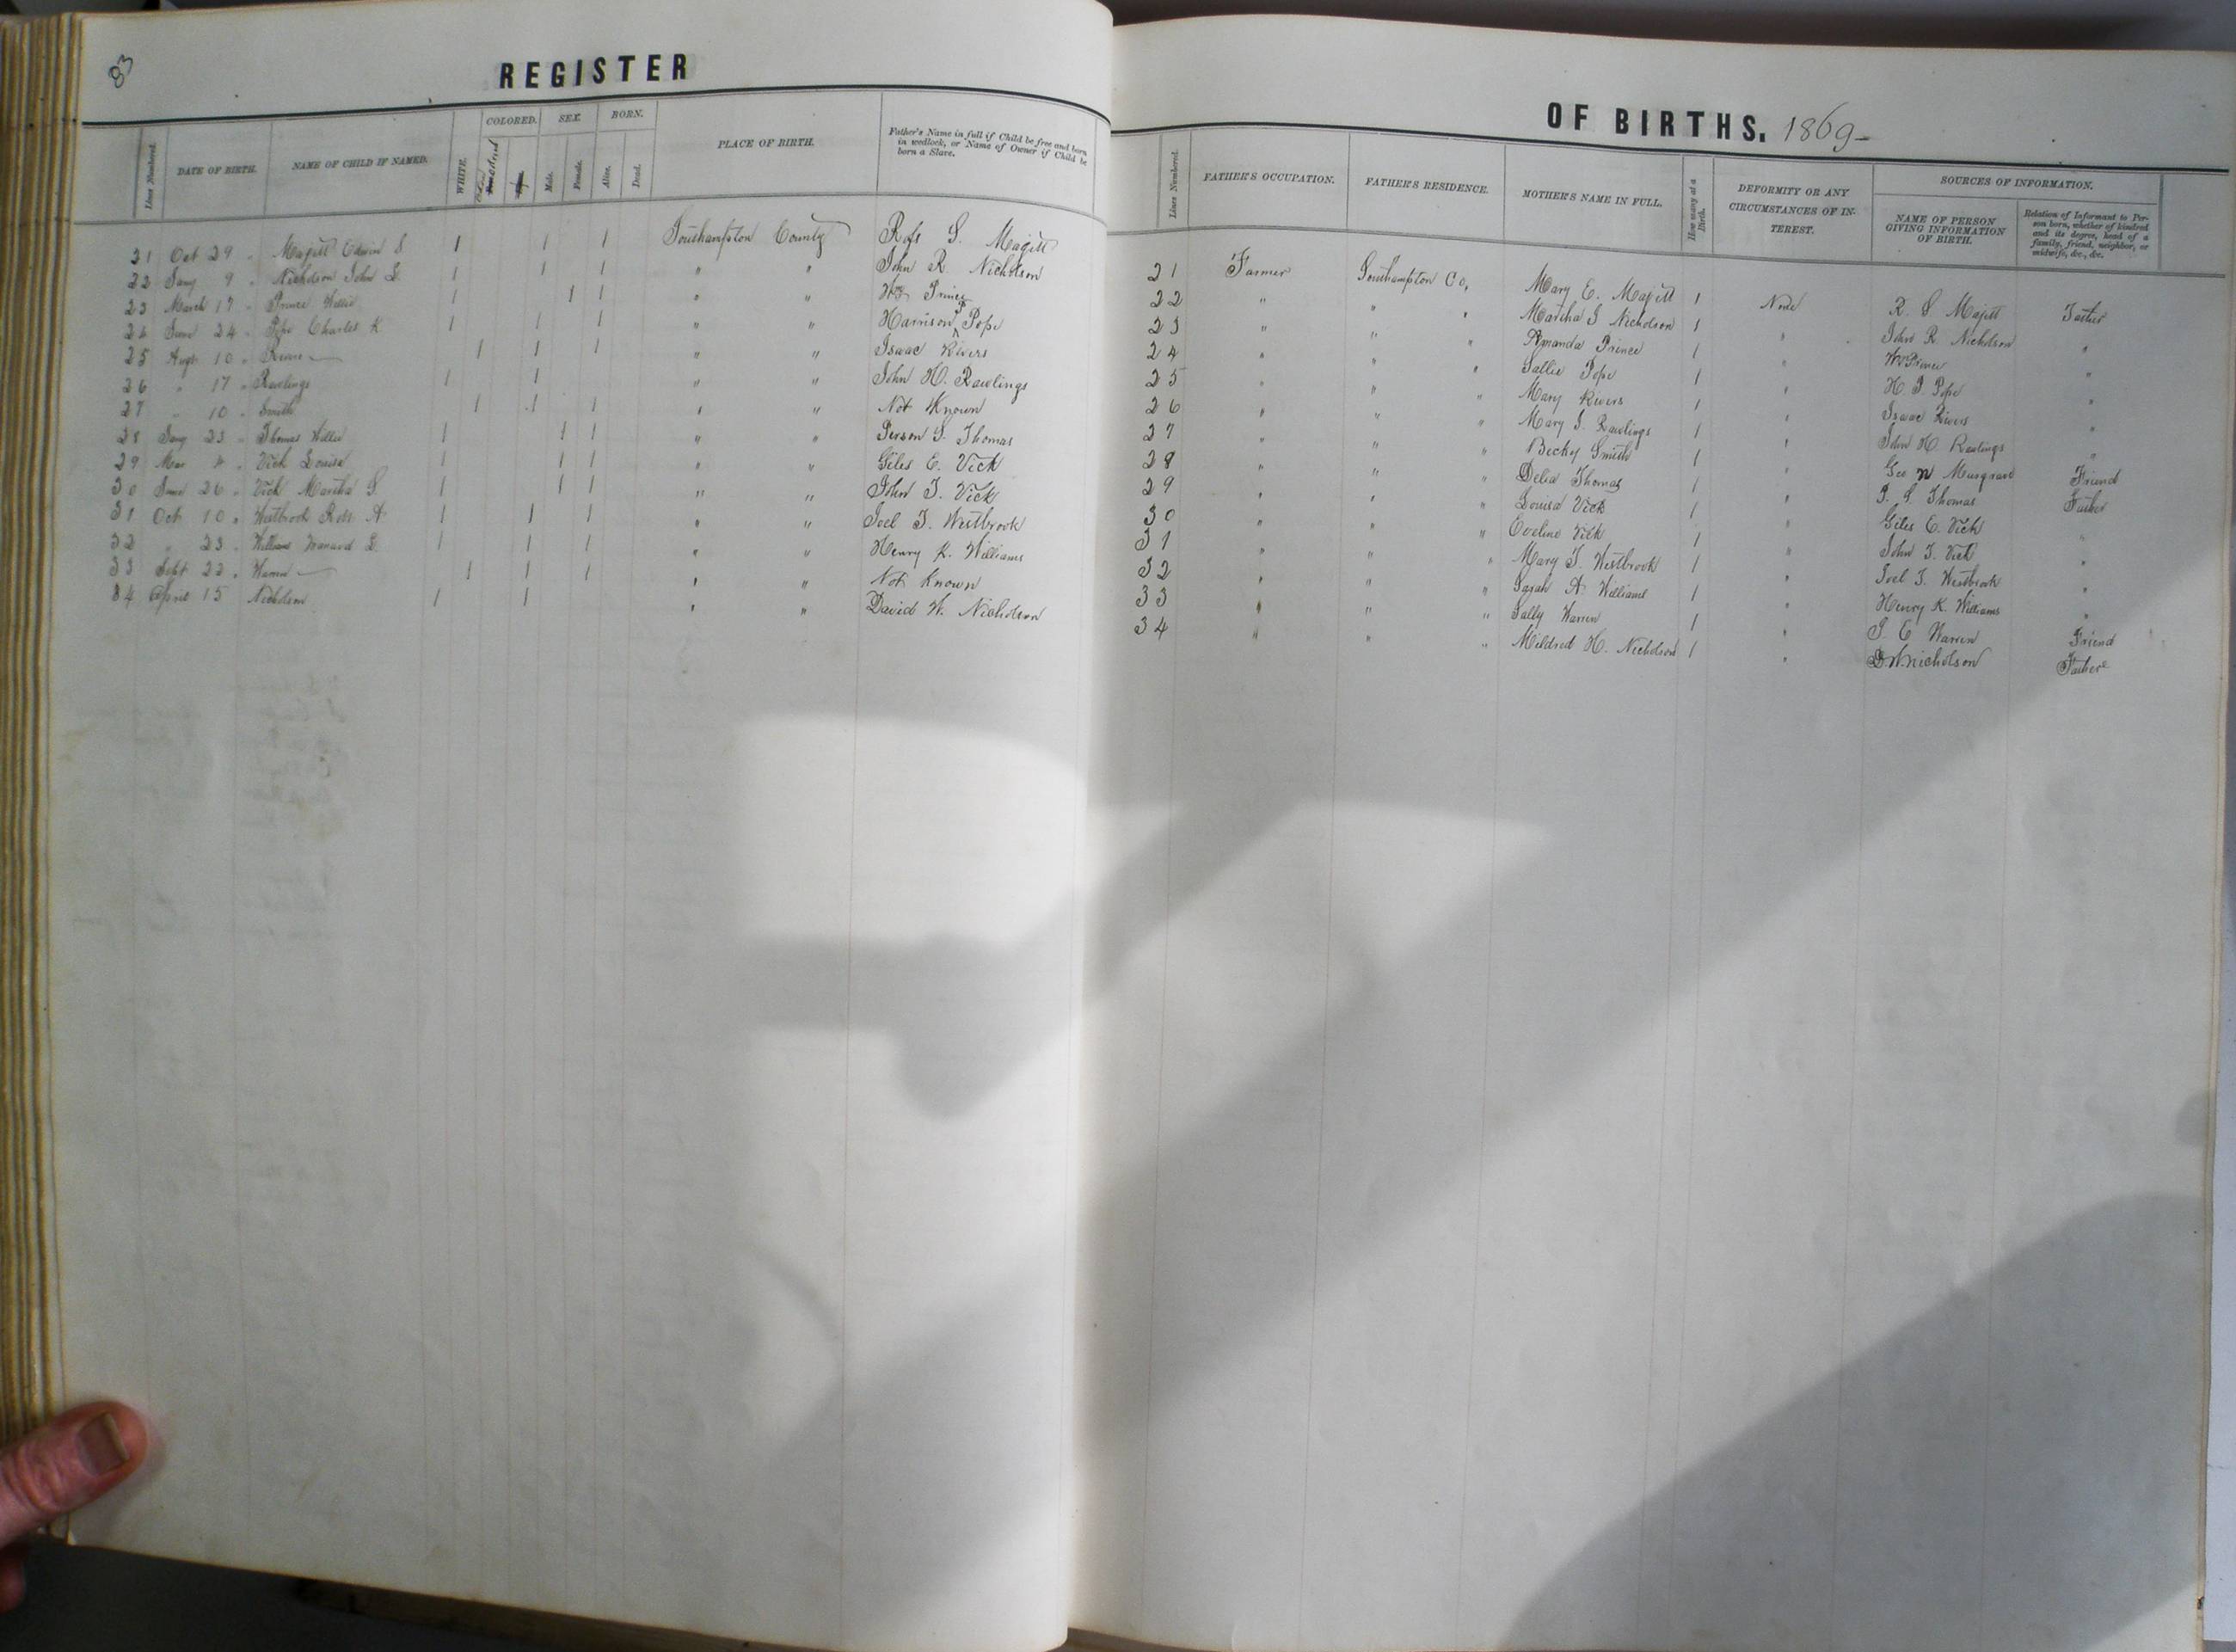 83
REGISTER
Lines Numbered. DATE OF BIRTH. NAME OF CHILD IF NAMED. WHITE. COLORED. SEX. Male. Female. BORN. Alive. Dead. PLACE OF BIRTH. Father's Name in full if Child be free and born in wedlock, or Name of Owner if Child be born a Slave.
21 Oct 29 " Majett Edwin S 1 1 1 Southampton County Ro S. Majett
22 Jany 9 " Nicholson John L 1 1 1 " " John R. Nicholson
23 March 17 " Prince Willie 1 1 1 " " Prince
24 June 24 " Pope Charles K 1 1 1 " " Harrison P Pope
25 Augt 10 " 1 1 1 " " Isaac Rivers
26 " 17 " Rawlings 1 1 " " John H. Rawlings
27 " 10 " Smith 1 1 1 " " Not Known
28 Jany 23 " Thomas Willie 1 1 1 " " Person S. Thomas
29 Mar " Vick Louisa 1 1 1 " " Giles E. Vick
30 June 26 " Vick Martha S 1 1 1 " " John T. Vick
31 Oct 10 " Westbrook Robt A 1 1 1 " " Joel T. Westbrook
32 " 23 " Williams L 1 1 1 " " Henry K. Williams
33 Sept 22 " Warren 1 1 1 " " Not Known
34 April 15 Nicholson 1 1 " " David W. Nicholson
OF BIRTHS. 1869-
Lines Numbered. FATHER'S OCCUPATION. FATHER'S RESIDENCE. MOTHER'S NAME IN FULL. How many at a Birth. DEFORMITY OR ANY CIRCUMSTANCES OF INTEREST. SOURCES OF INFORMATION. NAME OF PERSON GIVING INFORMATION OF BIRTH. Relation of Informant to Person born, whether of kindred and its degree, head of a family, friend, neighbor, or midwife, &c., &c.
21 Farmer Southampton Co, Mary E. Majett 1 None R. S Majett Father
22 " " " Martha J Nicholson 1 " John R. Nicholson "
23 " " " Amanda Prince 1 " Prince "
24 " " " Sallie Pope 1 " H. P. Pope "
25 " " " Mary Rivers 1 " Isaac Rivers "
26 " " " Mary J. Rawlings 1 " John H Rawlings "
27 " " " Becky Smith 1 " Geo N Musgrave Friend
28 " " " Delia Thomas 1 " P. S. Thomas Father
29 " " " Louisa Vick 1 " Giles E. Vick "
30 " " " Eveline Vick 1 " John T. Vick "
31 " " " Mary T. Westbrook 1 " Joel T. Westbrook "
32 " " " Sarah A Williams 1 " Henry K. Williams "
33 " " " Sally Warren 1 " E Warren Friend
34 " " " Mildred H. Nicholson 1 " D W Nicholson Father